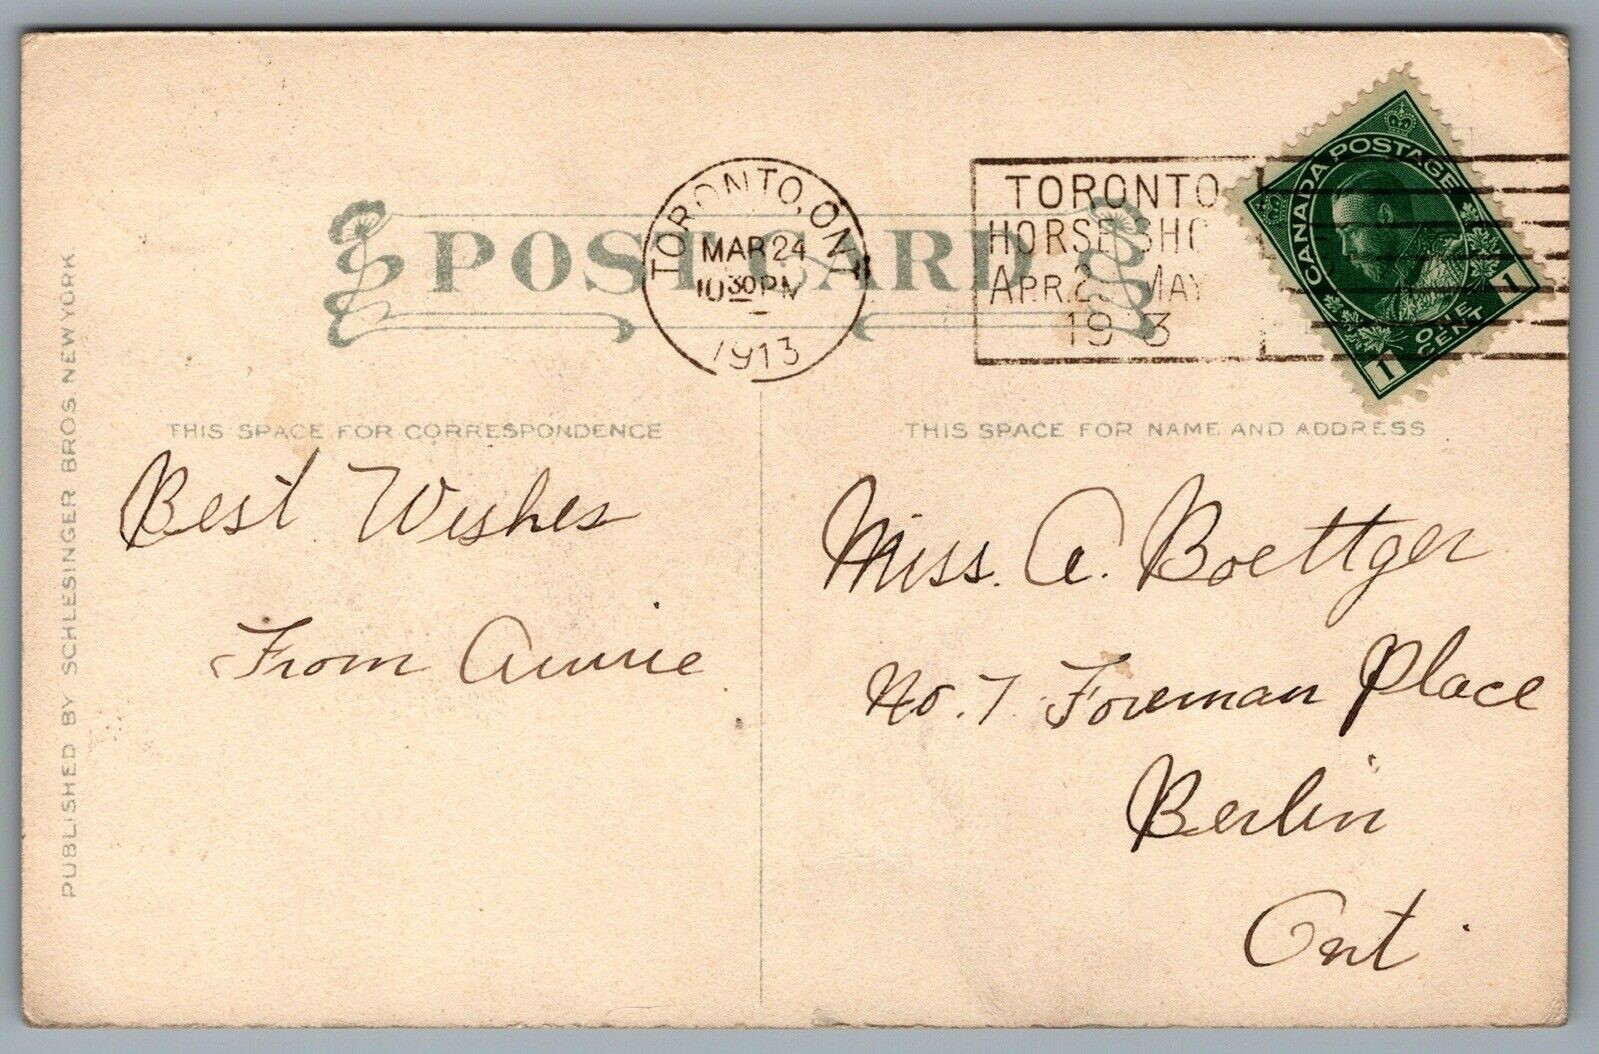 POST CARD
TORONTO, ONT
MAR 24
10 30 PM
1913
TORONTO
HORSE SHO
APR. 2 MAY
19 3
CANADA POSTAGE
1 ONE CENT 1
THIS SPACE FOR CORRESPONDENCE
THIS SPACE FOR NAME AND ADDRESS
PUBLISHED BY SCHLESINGER BROS NEW YORK
Best Wishes
From Annie
Miss. A. Boettger
No. 7 Foreman Place
Berlin
Ont.